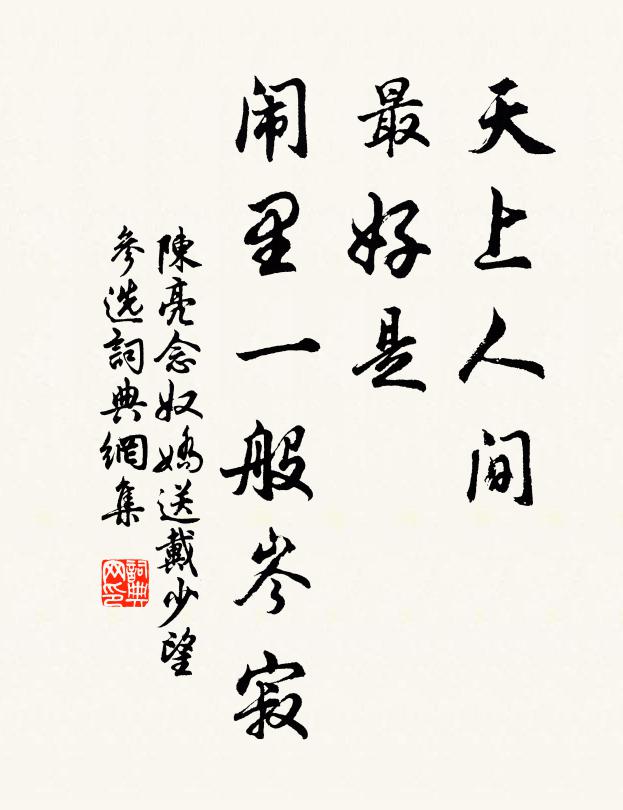 天上人间
最好是
闹里一般岑寂
陳亮念奴嬌送戴少望
參选詞典網集
詞典网印